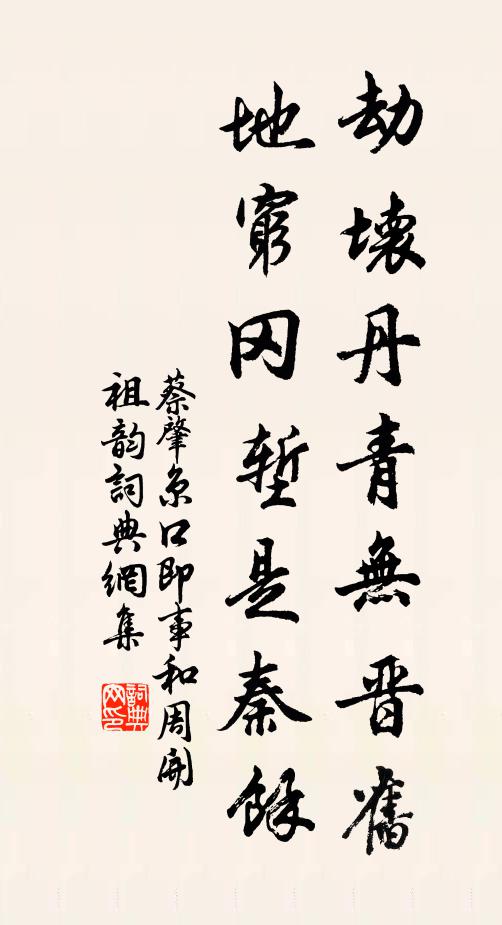 劫壞丹青無晉舊
地窮冈塹是秦餘
蔡肇京口即事和周開
祖韵詞典網集
詞典网印